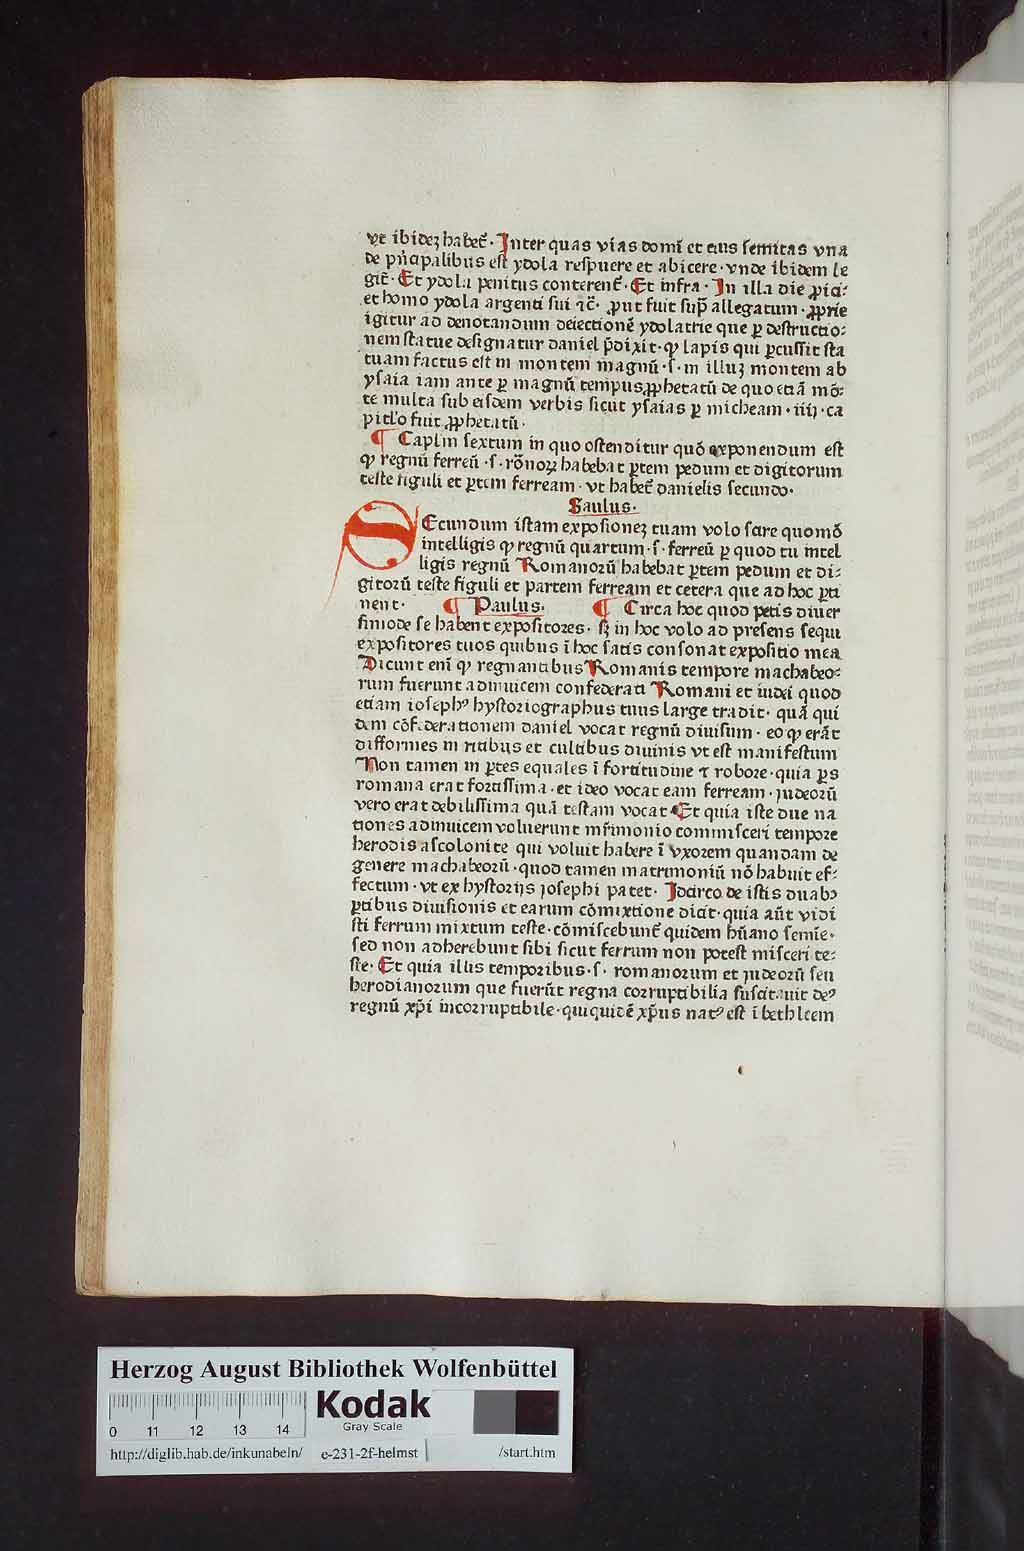 vt ibidez habet̃. Inter quas vias domĩ et eius semitas vna
de pñcipalibus est ydola respuere et abicere. vnde ibidem le
git̃. Et ydola penitus conterent̃. Et infra. In illa die ꝓici⸗
et homo ydola argenti sui ⁊c̃. ꝓut fuit supͣ allegatum. ꝓprie
igitur ad denotandum deiectionẽ ydolatrie que ꝑ destructio⸗
nem statue designatur daniel p̃dixit. ꝙ lapis qui ꝑcussit sta
tuam factus est in montem magnũ. s. in illuz montem ab
ysaia iam ante ꝑ magnũ tempus ꝓphetatũ de quo etiã mõ⸗
te multa sub eisdem verbis sicut ysaias ꝑ micheam. iiij. ca
pitl'o fuit ꝓphetatũ.
¶ Caplm̃ sextum in quo ostenditur quõ exponendum est
ꝙ regnũ ferreũ. s. rõnoꝝ habebat ꝑtem pedum et digitorum
teste figuli et ꝑtem ferream. vt habet̃ danielis secundo.
Saulus.
SEcundum istam exposionez tuam volo scire quomõ
intelligis ꝙ regnũ quartum. s. ferreũ ꝑ quod tu intel
ligis regnũ Romanorũ habebat ꝑtem pedum et di⸗
gitorũ teste figuli et partem ferream et cetera que ad hoc ꝑti
nent. ¶ Paulus. ¶ Circa hoc quod petis diuer
simode se habent expositores. sꝫ in hoc volo ad presens sequi
expositores tuos quibus ĩ hoc satis consonat expositio mea
Dicunt enĩ ꝙ regnantibus Romanis tempore machabeo⸗
rum fuerunt adinuicem confederati Romani et iudei quod
etiam iosephꝰ hystoriographus tuus large tradit. quã qui
dem cõfederationem daniel vocat regnũ diuisum. eo ꝙ erãt
difformes in ritibus et cultibus diuinis vt est manifestum
Non tamen in ꝑtes equales ĩ fortitudine ⁊ robore. quia ꝑs
romana erat fortissima. et ideo vocat eam ferream. judeorũ
vero erat debilissima quã testam vocat. Et quia iste due na
tiones adinuicem voluerunt mr̃imonio commisceri tempore
herodis ascolonite qui voluit habere ĩ vxorem quandam de
genere machabeorũ. quod tamen matrimoniũ nõ habuit ef⸗
fectum. vt ex hystorijs josephi patet. Idcirco de istis duabꝰ
ꝑtibus diuisionis et earum cõmixtione dicit. quia aũt vidi
sti ferrum mixtum teste. cõmiscebunt̃ quidem hũano semĩe.
sed non adherebunt sibi sicut ferrum non potest misceri te⸗
ste. Et quia illis temporibus. s. romanorum et judeorũ seu
herodianorum que fuerũt regna corruptibilia suscitauit deꝰ
regnũ xp̃i incorruptibile. qui quidẽ xp̃us natꝰ est ĩ bethleem
Herzog August Bibliothek Wolfenbüttel
0 11 12 13 14
Kodak
Gray Scale
http://diglib.hab.de/inkunabeln/ e-231-2f-helmst /start.htm